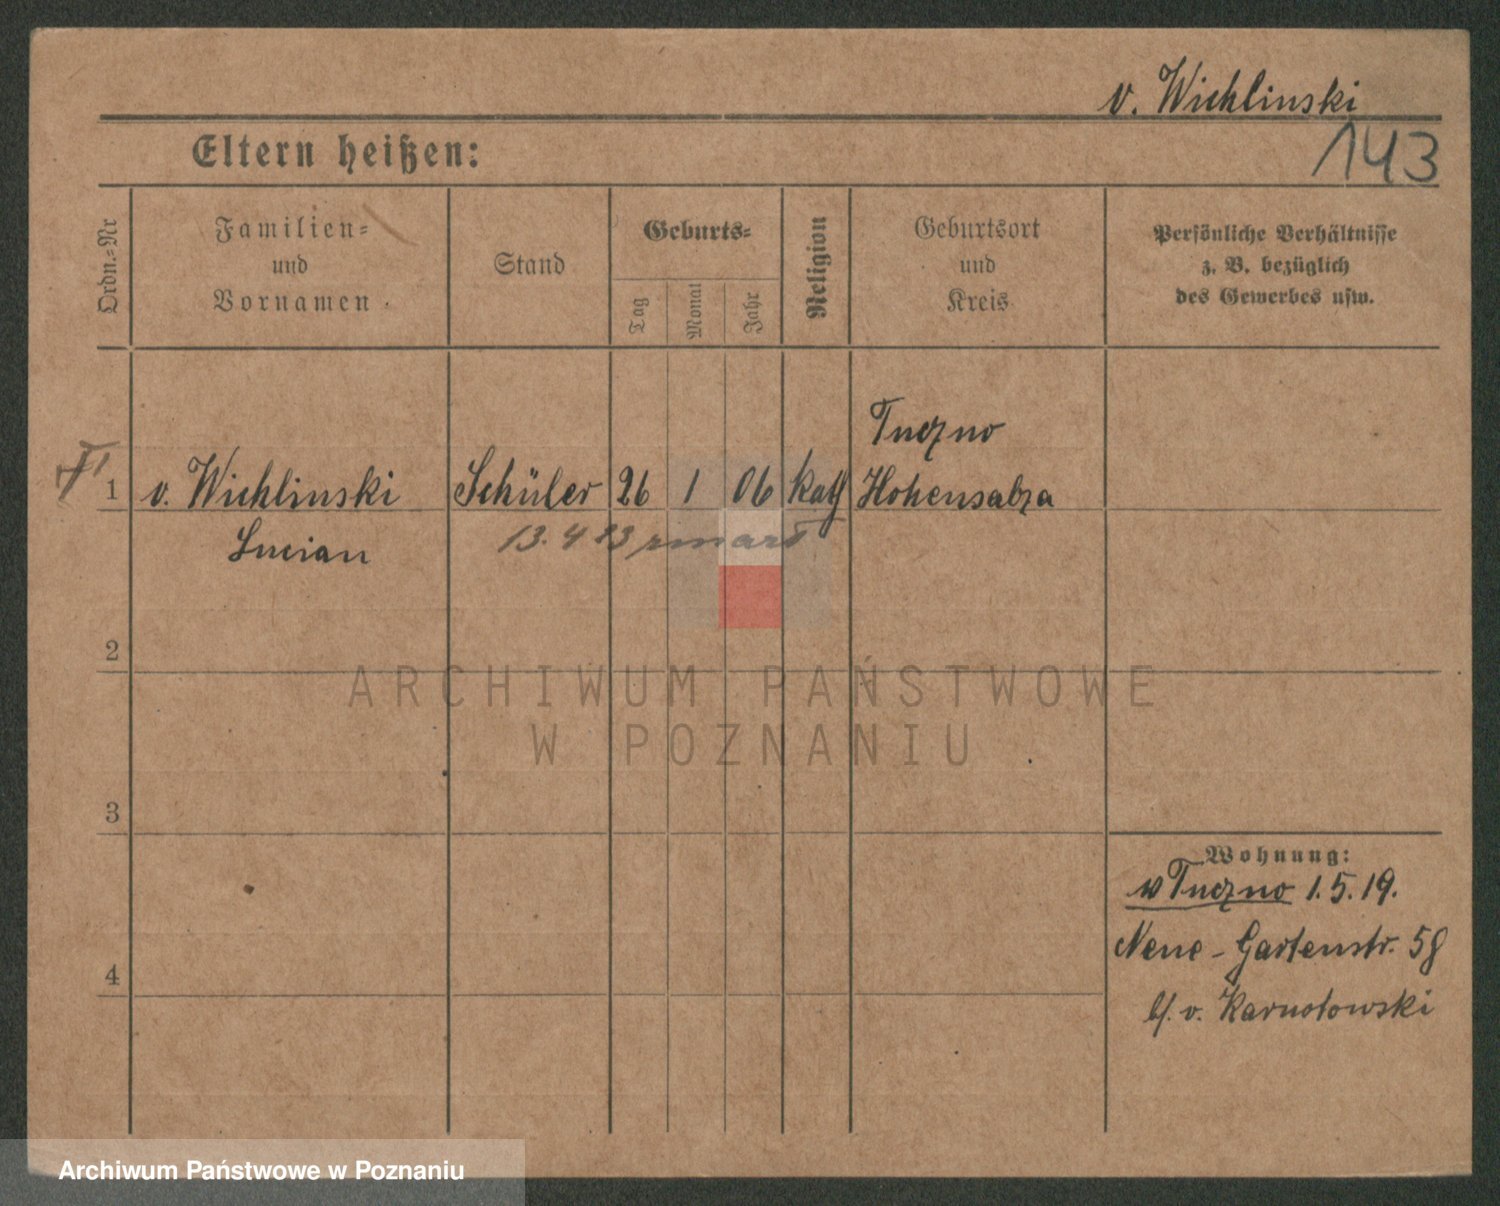 v. Wichlinski
Eltern heißen:
143
Ordn.-Nr
Familien-
und
Vornamen.
Stand
Geburts-
Tag
Monat
Jahr
Religion
Geburtsort
und
Kreis
Persönliche Verhältnisse
z. B. bezüglich
des Gewerbes usw.
1
v. Wichlinski
Lucian
Schüler
26
1
06
kath
Tuczno
Hohensalza
13. 4 23 zmarł
2
3
4
Wohnung:
w Tuczno 1.5.19.
Neue - Gartenstr. 58
b/. v. Karnotowski
ARCHIWUM PAŃSTWOWE
W POZNANIU
Archiwum Państwowe w Poznaniu